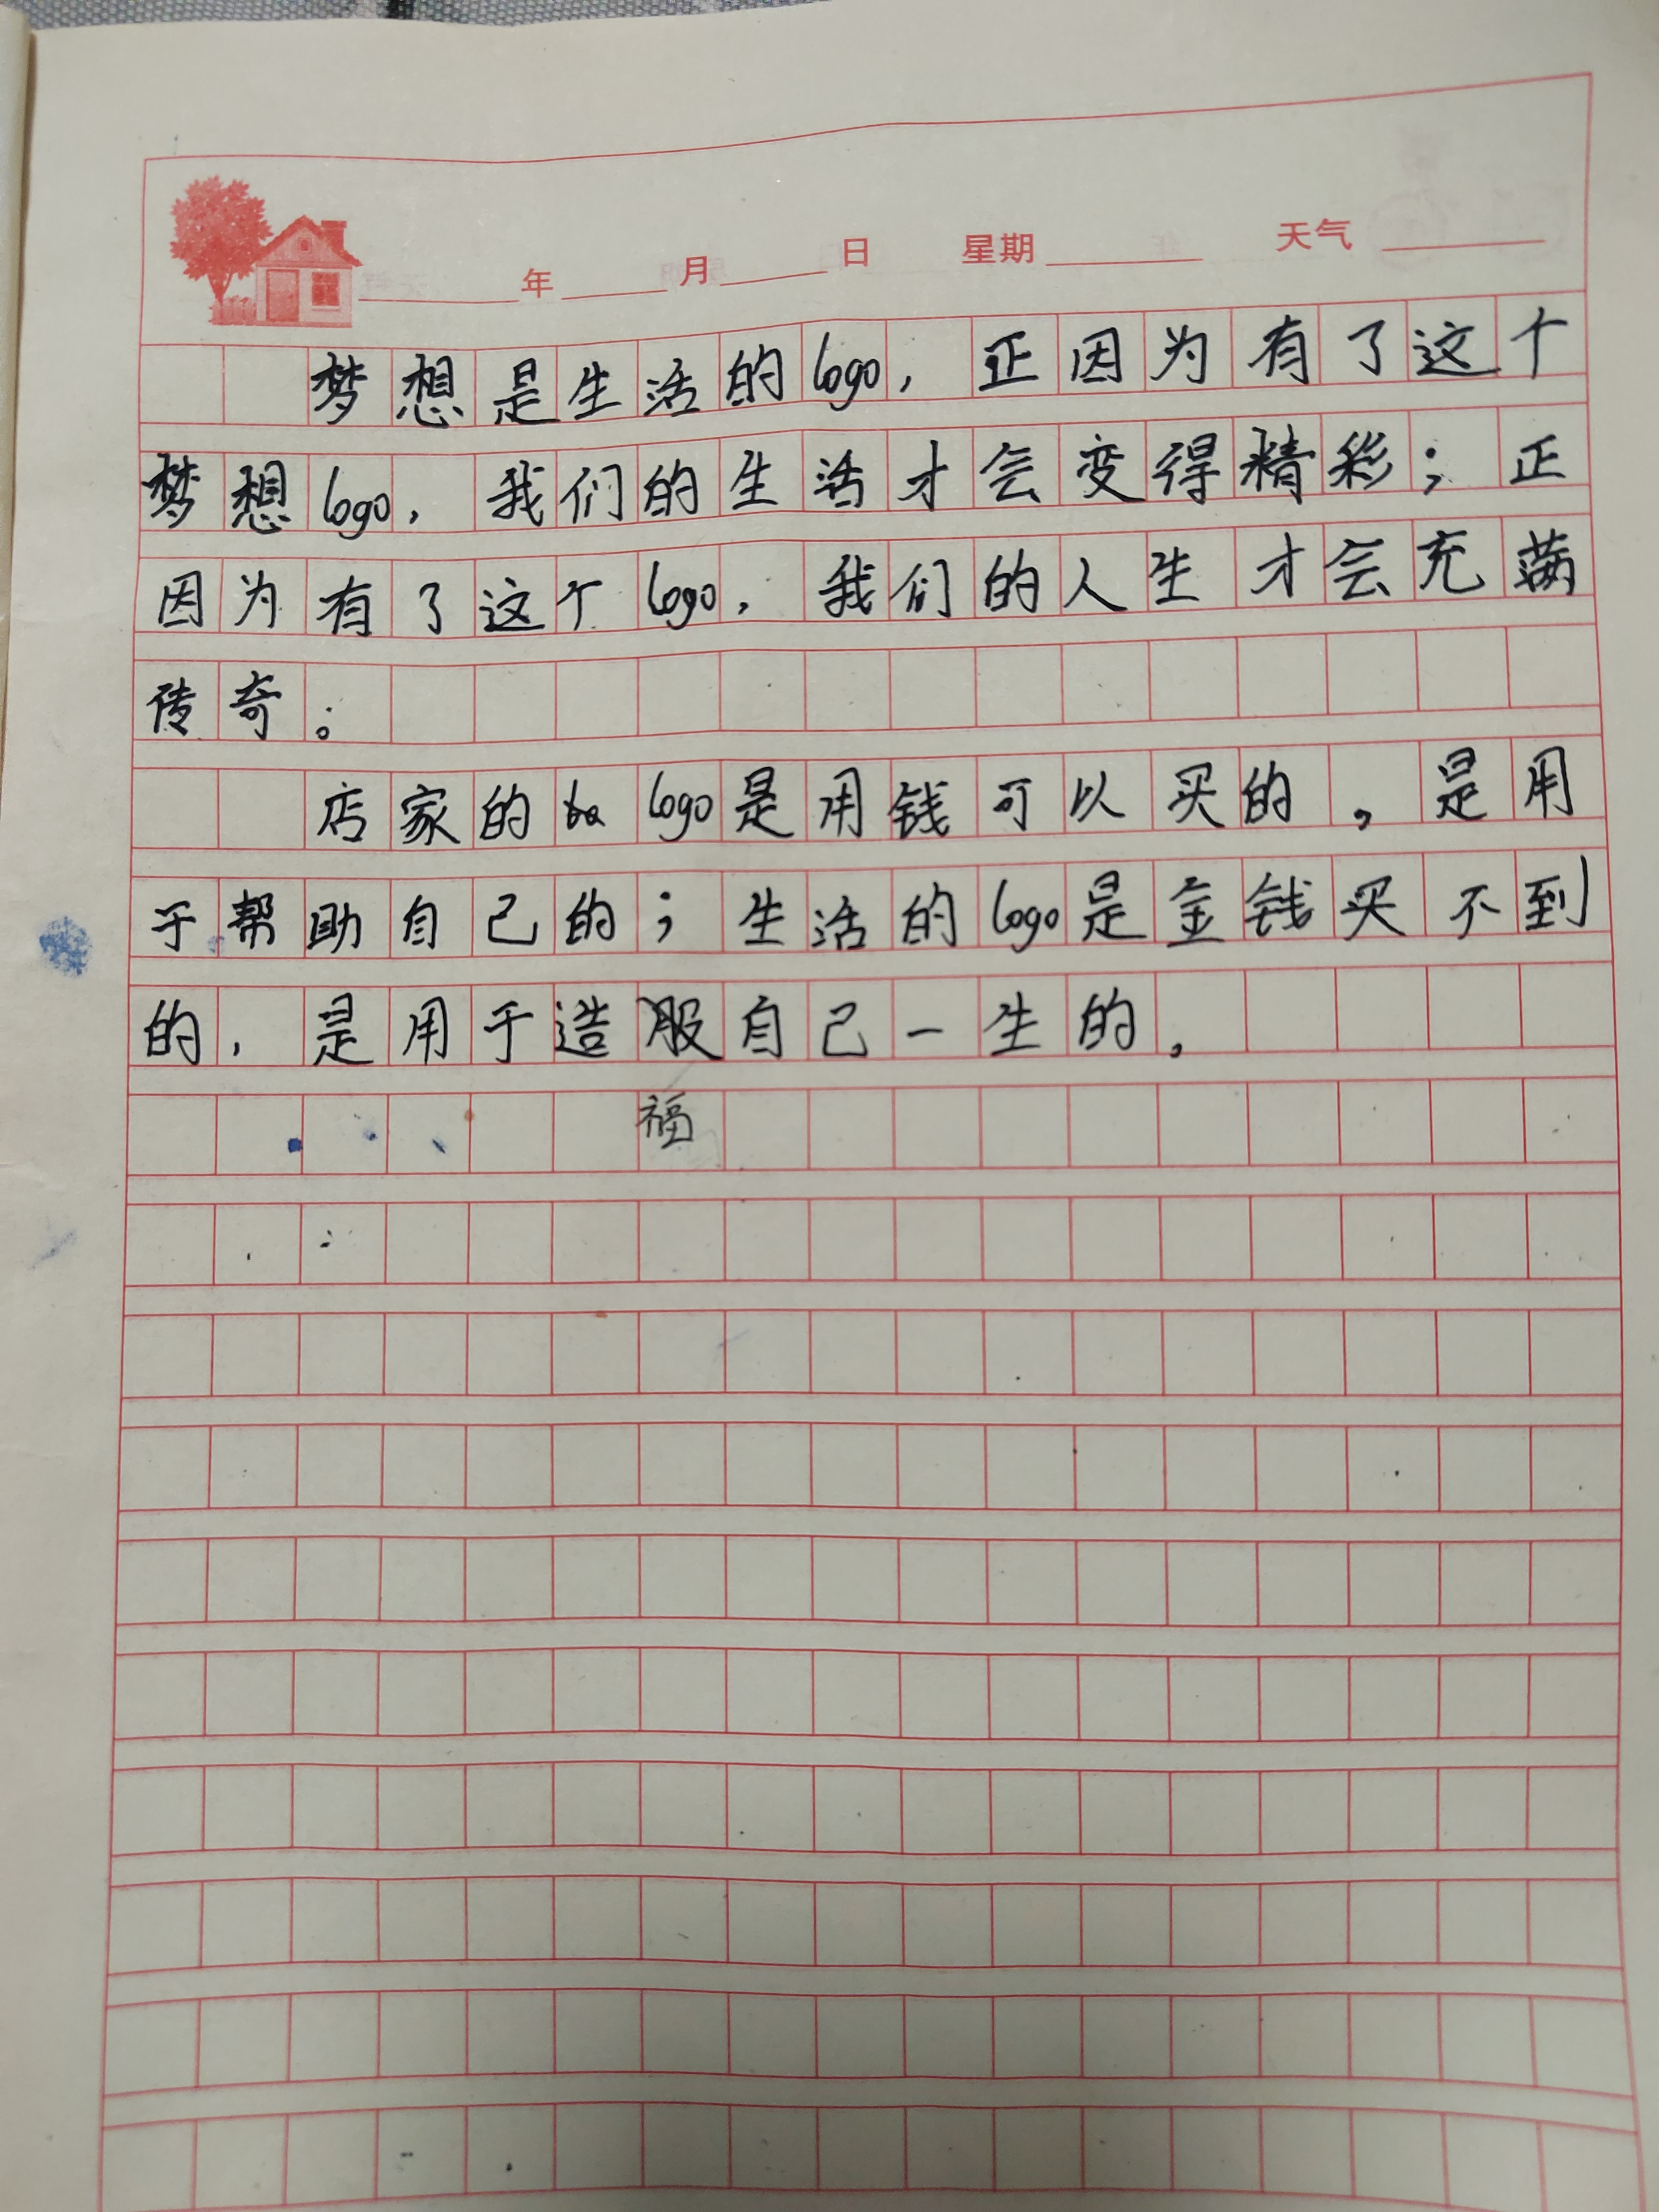 年 月 日 星期 天气
梦想是生活的logo，正因为有了这个
梦想logo，我们的生活才会变得精彩；正
因为有了这个logo，我们的人生才会充满
传奇。
店家的logo是用钱可以买的，是用
于帮助自己的；生活的logo是金钱买不到
的，是用于造服自己一生的。
福